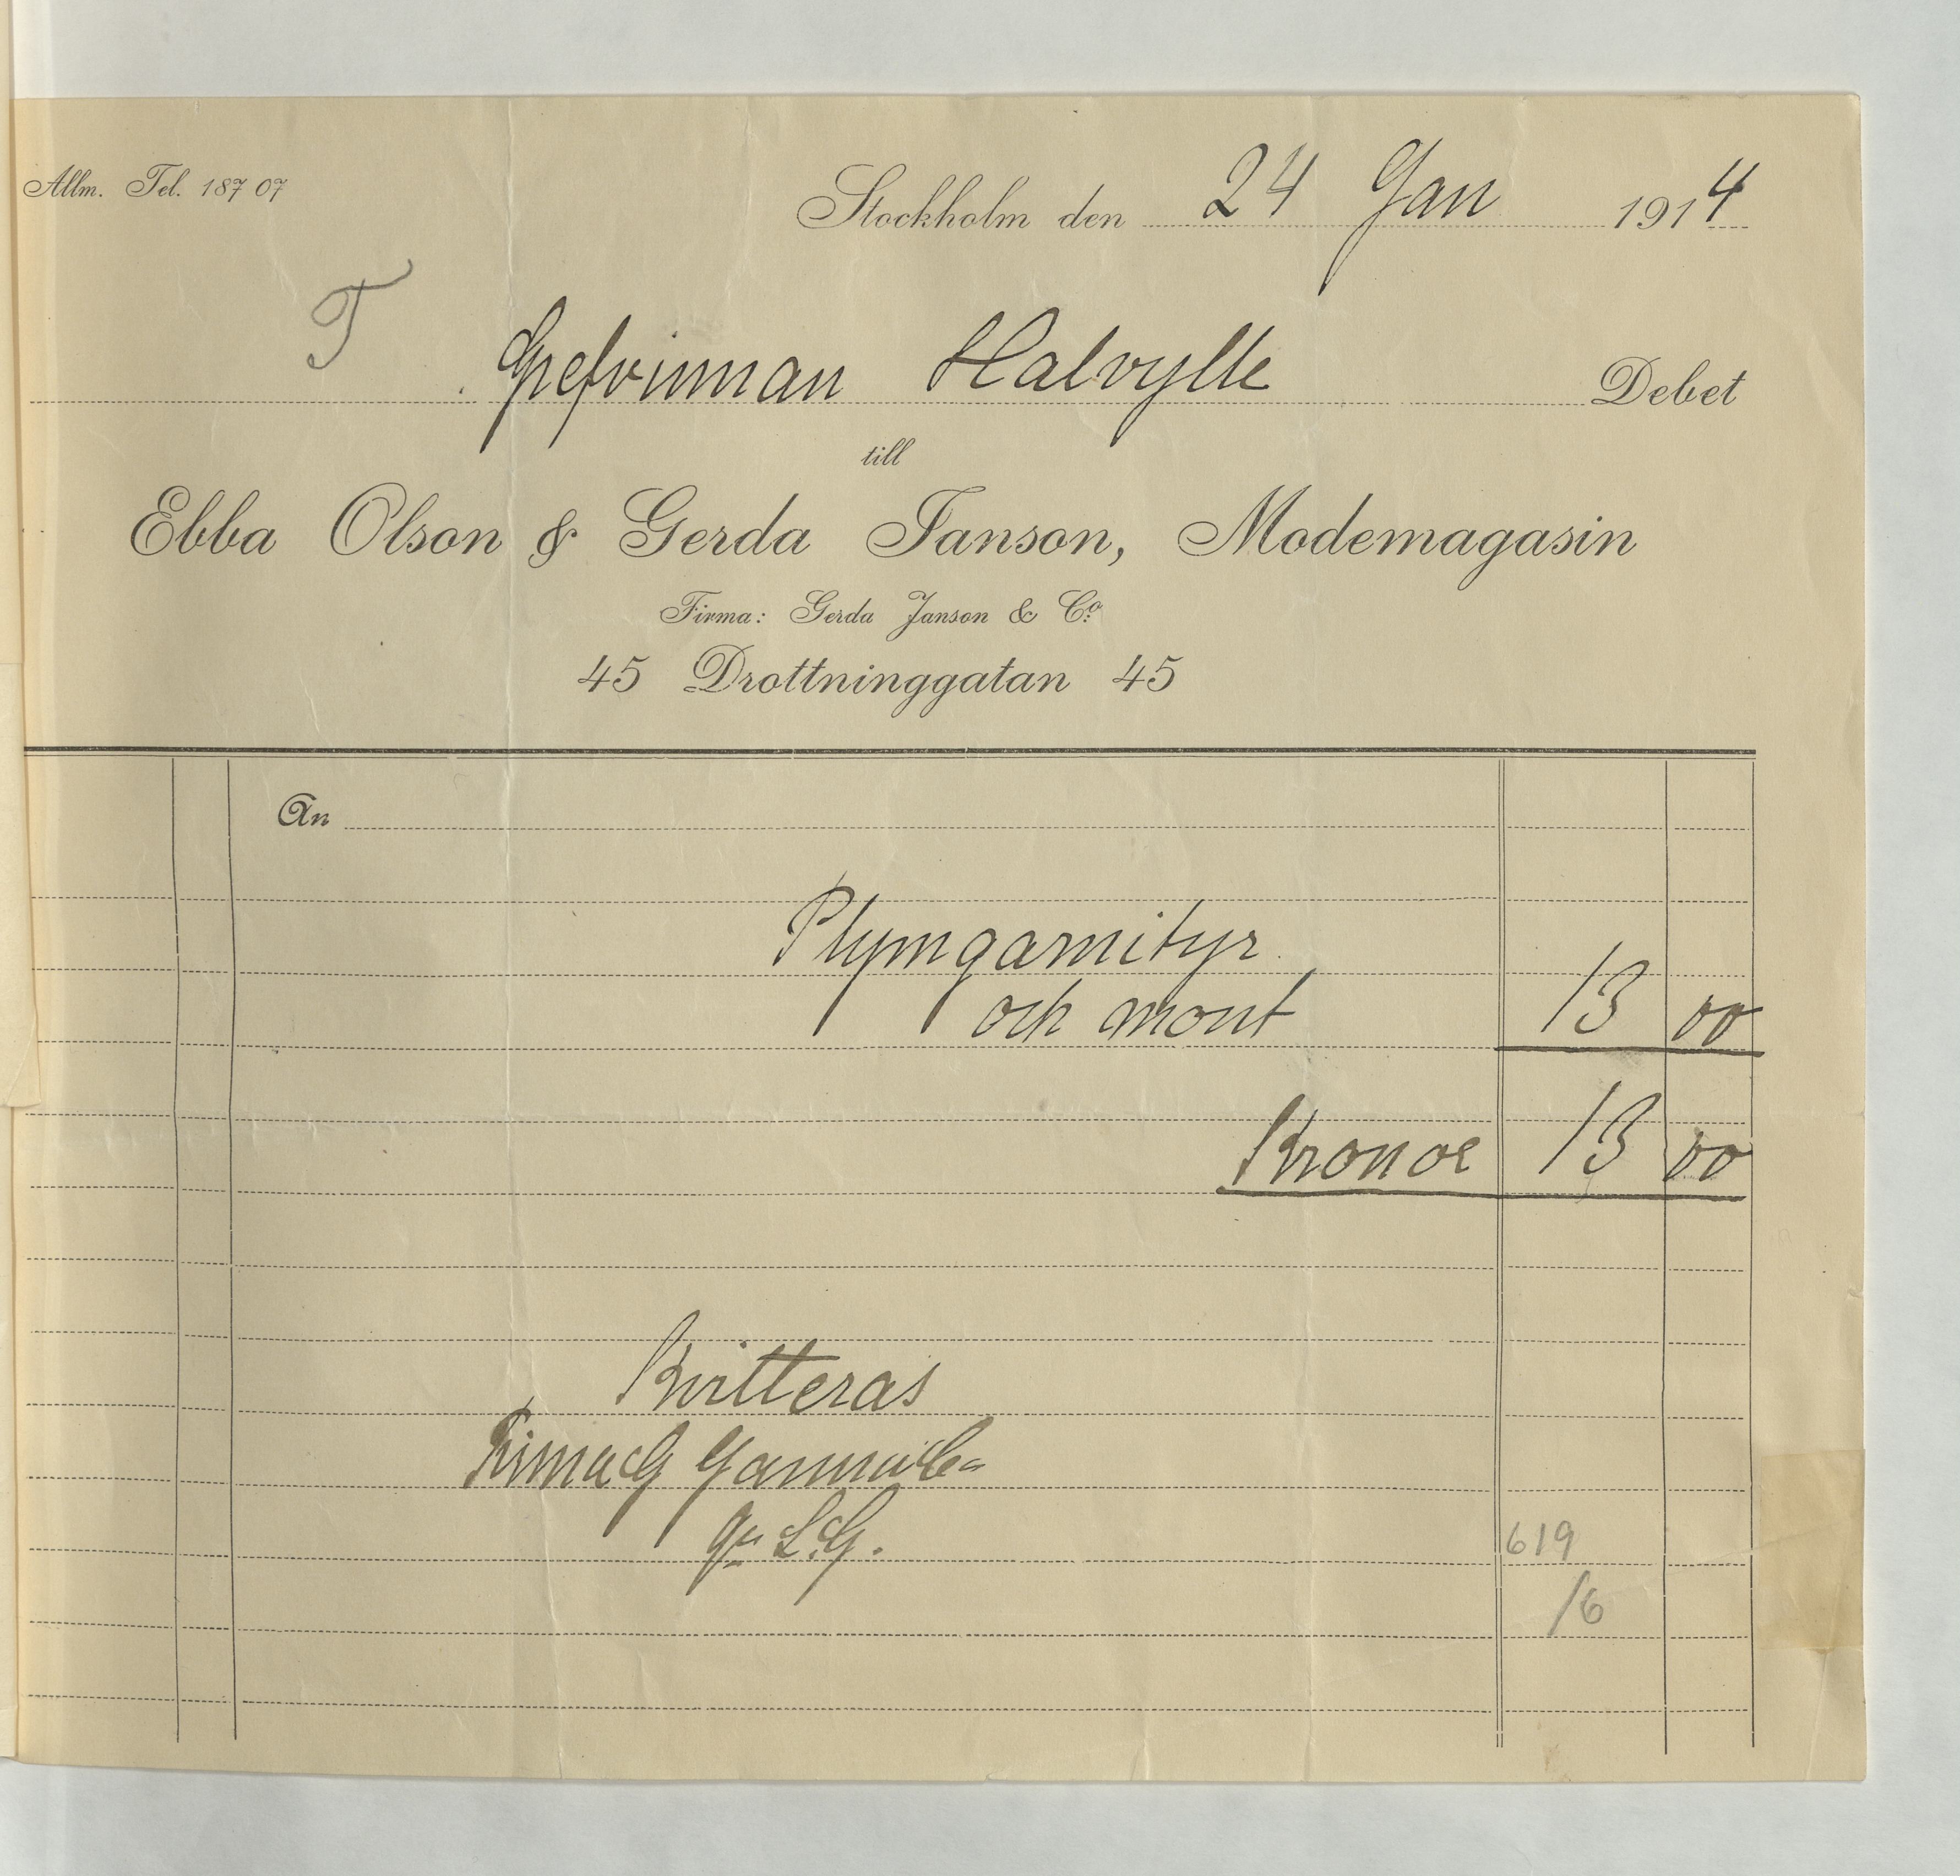 Allm. Tel. 187 07
Stockholm den 24 Jan 1914
T
Grefvinnan Halvylle Debet
till
Ebba Olson & Gerda Janson, Modemagasin
Firma: Gerda Janson & Co.
45 Drottninggatan 45
An
Plymgarnityr
och mont 13 00
Kronor 13 00
Kvitteras
Firma G Janson & Co
gm S.G.
619
/6